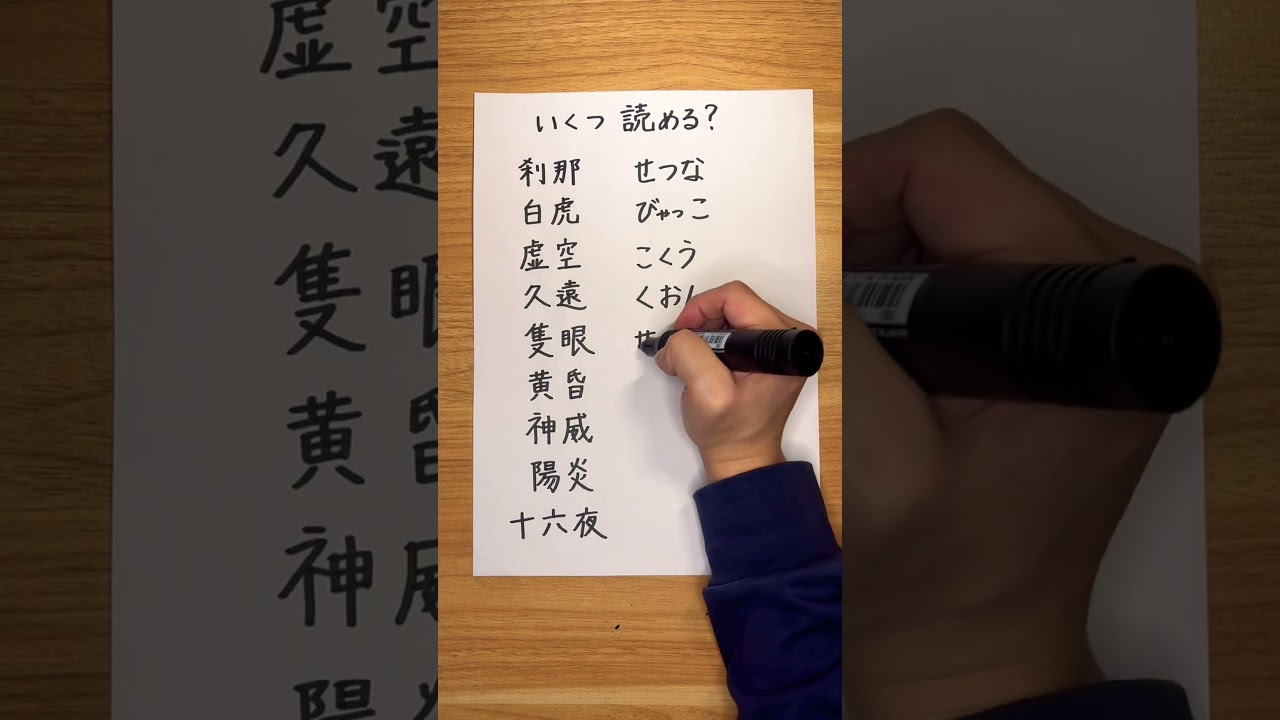 いくつ読める?
刹那 せつな
白虎 びゃっこ
虚空 こくう
久遠 くおん
隻眼 せ
黄昏
神威
陽炎
十六夜